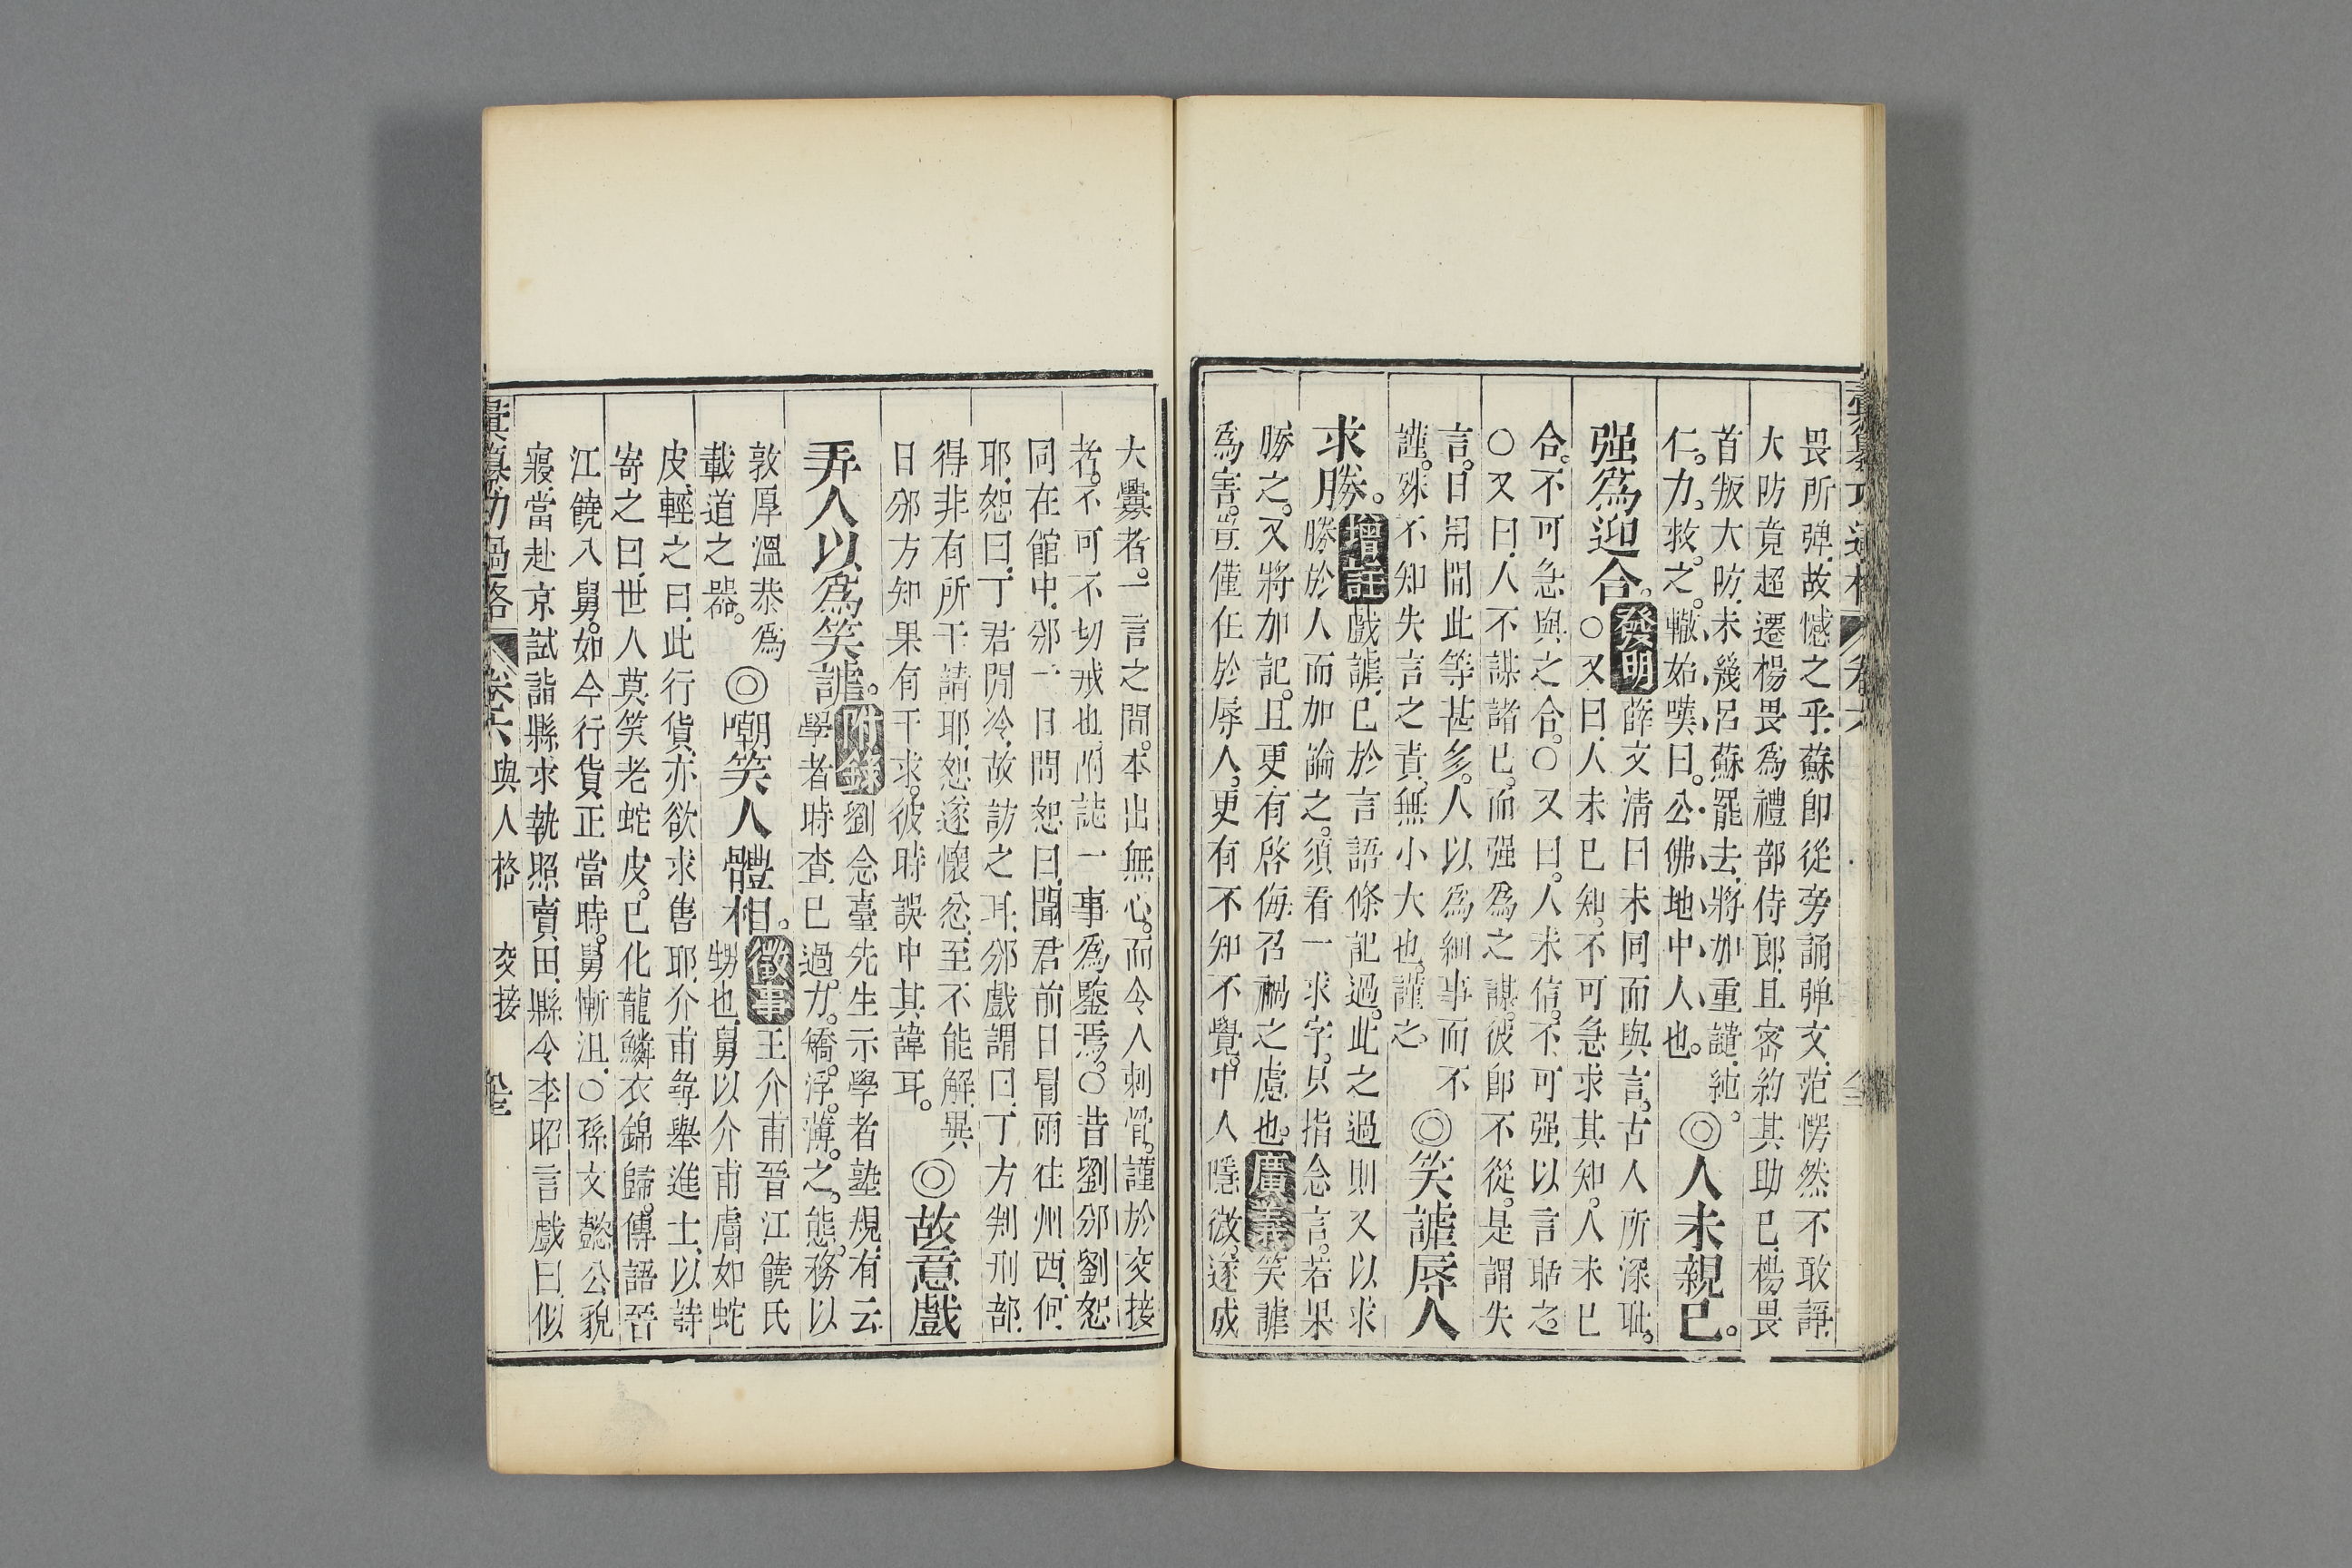 彙纂功過格 卷六
畏所彈.故憾之乎.蘇卽從旁誦彈文.范愕然不敢諍.
大防竟超遷楊畏爲禮部侍郎.且密約其助已.楊畏
首叛大防.未幾呂蘇罷去.將加重譴.純。
仁。力。救。之。轍始嘆曰。公佛地中人也。
◎人未親已。
强爲迎合。
發明 薛文淸曰未同而與言。古人所深耻。
○又曰.人未已知.不可急求其知。人未已
合。不可急與之合。○又曰。人求信。不可强以言聒之。
○又曰.人不謀諸已。而强爲之謀。彼卽不從。是謂失
言。日用間此等甚多。人以爲細事而不
謹。殊不知失言之責。無小大也。謹之。
◎笑謔辱人
求勝。
增註 戲謔.已於言語條記過。此之過則又以求
勝於人而加論之。須看一求字。只指念言。若果
勝之。又將加記。且更有啓侮召禍之慮也。廣義 笑謔
爲害。豈僅在於辱人。更有不知不覺。中人隱微。遂成
大釁者。一言之間。本出無心。而令人刺骨。謹於交接
者。不可不切戒也.附誌一事爲鑒焉。○昔劉邠劉恕
同在館中.邠一日問恕曰.聞君前日冒雨往州西.何
耶.恕曰.丁君閒冷.故訪之耳.邠戲謂曰.丁方判刑部.
得非有所干請耶.恕遂懷忿.至不能解.異
日邠方知果有干求。彼時誤中其諱耳。
◎故意戲
弄人以爲笑謔。
附錄 劉念臺先生示學者塾規.有云
學者時查已過。力。矯。浮。薄。之。態。務以
敦厚溫恭爲
載道之器。
◎嘲笑人體相。
徵事 王介甫晉江饒氏
甥也.舅以介甫膚如蛇
皮.輕之曰.此行貨.亦欲求售耶.介甫尋舉進士.以詩
寄之曰.世人莫笑老蛇皮。已化龍鱗衣錦歸。傳語晉
江饒八舅。如今行貨正當時。舅慚沮.○孫文懿公貌
寢.當赴京試詣縣求執照賣田.縣令李昭言戲曰似
彙纂功過格 卷六 與人格 交接